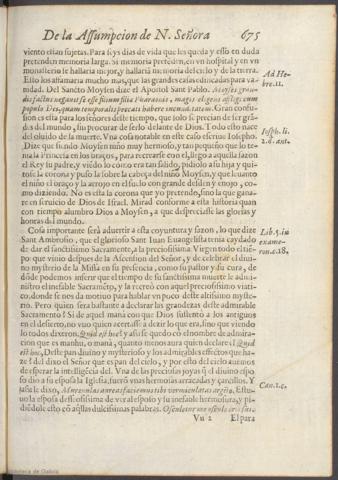 De la Assumpcion de N. Señora 675
viento estan sujetas. Para seys dias de vida que les queda y esso en duda
pretenden memoria larga. Si memoria pretenden, en vn hospital y en vn
monasterio se hallaria mejor, y hallaria memoria del cielo y de la tierra.
Esto los affamaria mucho mas, que las grandes casas edificadas para va-
nidad. Del Sancto Moysen dize el Apostol Sant Pablo. Moyses gran-
dis factus negauit se esse filium filiæ Pharaonis, magis eligens affligi cum
populo Dei, quam temporalis peccati habere iucunditatem. Gran confu-
sion es esta para los señores deste tiempo, que solo se precian de ser gran-
des del mundo, sin procurar de serlo delante de Dios. Todo esto nace
del oluido de la muerte. Vna cosa notable en este caso escriue Iosepho.
Dize que siendo Moysen niño muy hermoso, y tan pequeño que lo te-
nia la Princesa en los braços, para recrearse con el, llego a aquella sazon
el Rey su padre, y viendo lo como era tan sabido, pidiolo a su hija y qui-
tose la corona y puso la sobre la cabeça del niño Moysen, y que leuanto
el niño el braço y la arrojo en el suelo con grande desden y enojo, co-
mo diziendo. No es esta la corona que yo pretendo, sino la que ganare
en seruicio de Dios de Israel. Mirad conforme a esta historia quan
con tiempo alumbro Dios a Moysen, a que despreciasse las glorias y
honras del mundo.
Cosa importante será aduertir a esta coyuntura y sazon, lo que dize
Sant Ambrosio, que el glorioso Sant Iuan Euangelista tenia cuydado
de dar el sanctissimo Sacramento, a la preciosissima Virgen todo el tiem-
po que vinio despues de la Ascension del Señor, y de celebrar el diui-
no mysterio de la Missa en su presencia, como su pastor y su cura, de
dóde podemos inserir que el tiempo de su sanctissima muerte le admi-
nistro el inefable Sacramēto, y la recreó con aquel preciosissimo viati-
co, donde se nos da motiuo para hablar vn poco deste altissimo myste-
rio. Pero quien sera bastante a declarar las grandezas deste admirable
Sacramento! Si de aquel maná con que Dios sustentó a los antiguos
en el desierto, no vuo quien acertasse a dezir lo que era, sino que viendo
lo todos dixeron. Quid est hoc! y assi se quedó có el nombre de admira-
cion que es manhu, o maná, quanto menos aura quien declare el Quid
est hoc, Deste pan diuino y mysterioso y los admirables effectos que ha-
ze! del dixo el Señor que es pan del cielo, y por esto del cielo auemos
de esperar la intelligēcia del. Vna de las preciosas joyas q̃ el diuino espo-
so dio a su esposa la Iglesia, fueró vnas hermosas arracadas y çarcillos. Y
assi le dixo, Murenulas aureas faciemus tibi vermiculatas argēto. Estu-
uo la esposa desseosissima de ver al esposo y su inefable hermosura, y pi-
diédole esto có aq̃llas dulcissimas palabras. Osculetur me osculo oris sui.
Vu 2 El para
Ad He-
bre. 11.
Ioseph. li.
2. d. ant.
Lib. 5. in
exame-
ron. c. 18.
Can. 1. c.
Biblioteca de Galicia